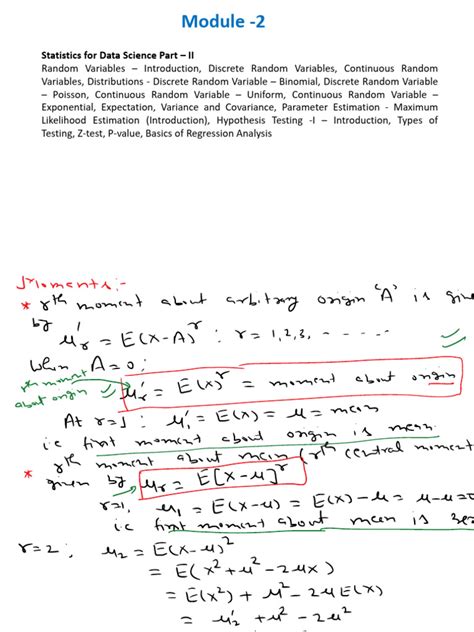 Module -2
Statistics for Data Science Part – II
Random Variables – Introduction, Discrete Random Variables, Continuous Random
Variables, Distributions - Discrete Random Variable – Binomial, Discrete Random Variable
– Poisson, Continuous Random Variable – Uniform, Continuous Random Variable –
Exponential, Expectation, Variance and Covariance, Parameter Estimation - Maximum
Likelihood Estimation (Introduction), Hypothesis Testing -I – Introduction, Types of
Testing, Z-test, P-value, Basics of Regression Analysis
Moments:-
* rth moment about arbitrary origin 'A' is give
by μ'r = E(X-A)^r : r = 1,2,3, - - - - -
When A=0 :
rth moment about origin μ'r = E(X)^r = moment about origin
At r=1 μ'1 = E(X) = μ = mean
i.e first moment about origin is mean
* rth moment about mean (rth central moment
given by μr = E[X-μ]^r
r=1, μ1 = E(X-μ) = E(X)-μ = μ-μ=0
i.e first moment about mean is zer
r=2 ; μ2 = E(X-μ)^2
= E(X^2+μ^2-2μX)
= E(X^2)+μ^2-2μE(X)
= μ'2 + μ^2 - 2μ^2